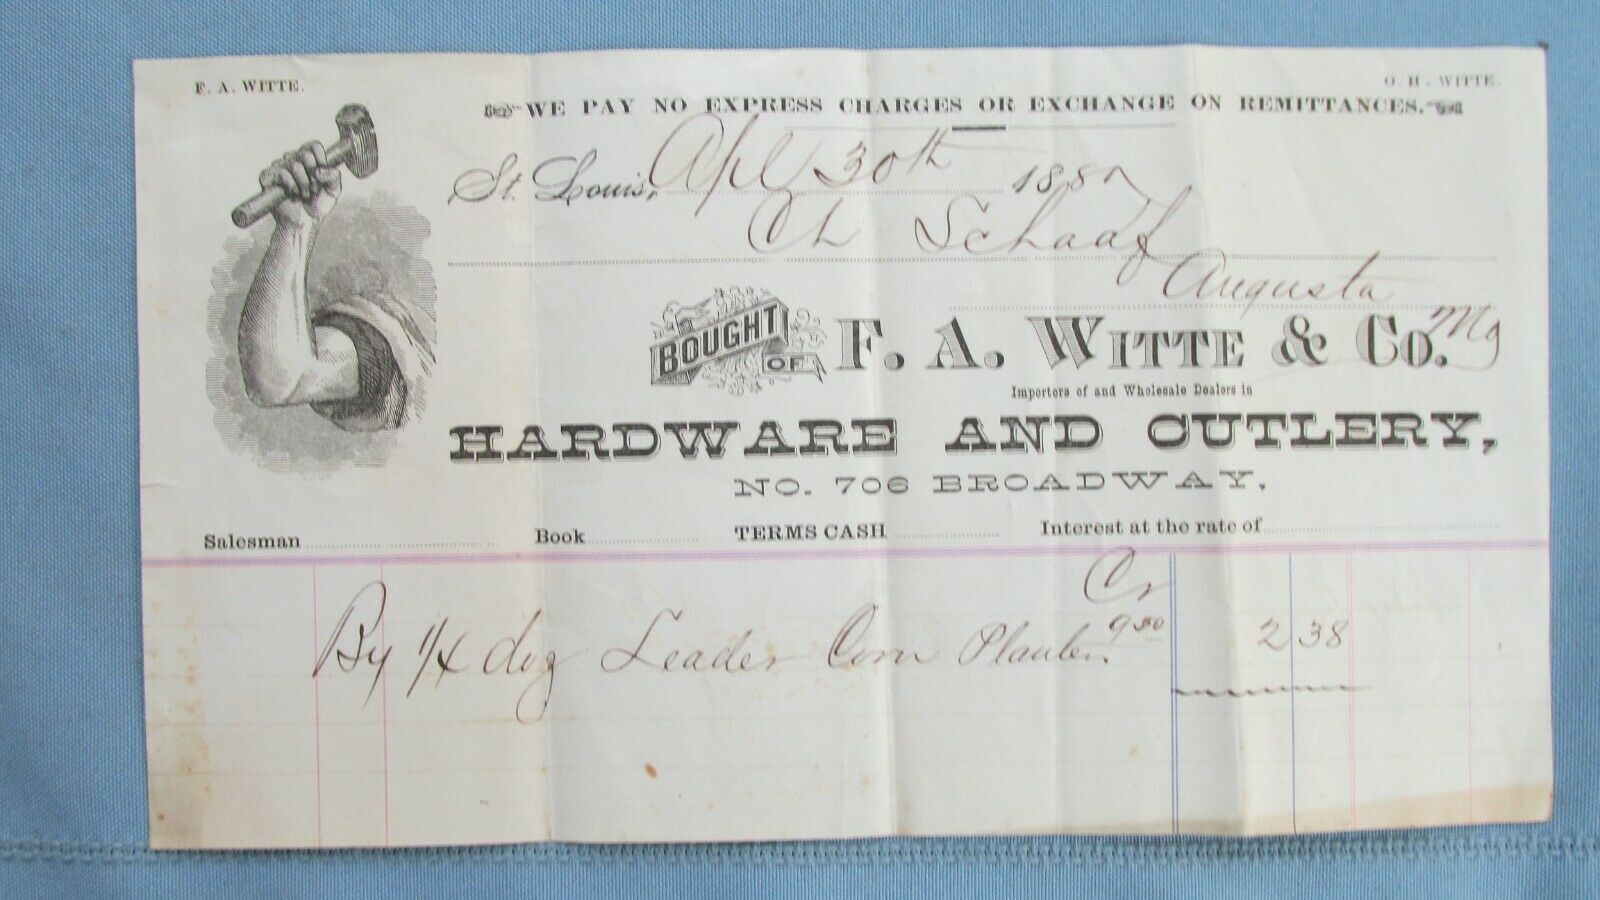 F. A. WITTE.
O. H. WITTE.
WE PAY NO EXPRESS CHARGES OR EXCHANGE ON REMITTANCES.
St. Louis, Apl 30th 1887
Ch Schaaf
Augusta
Mo
BOUGHT OF F. A. WITTE & CO.
Importers of and Wholesale Dealers in
HARDWARE AND CUTLERY,
NO. 706 BROADWAY.
Salesman Book TERMS CASH Interest at the rate of
Cr
By 1/4 doz Leader Corn Planters 9.50 2 38